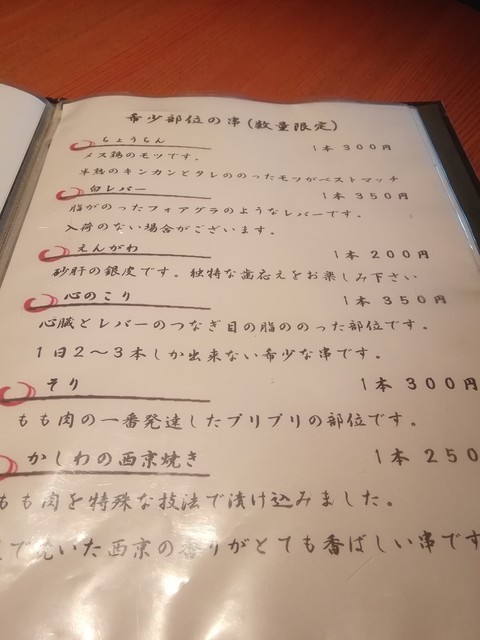 希少部位の串(数量限定)
ちょうちん 1本 300円
メス鶏のモツです。
半熟のキンカンとタレののったモツがベストマッチ
白レバー 1本 350円
脂がのったフォアグラのようなレバーです。
入荷のない場合がございます。
えんがわ 1本 200円
砂肝の銀皮です。独特な歯応えをお楽しみ下さい
心のこり 1本 350円
心臓とレバーのつなぎ目の脂ののった部位です。
1日2〜3本しか出来ない希少な串です。
そり 1本 300円
もも肉の一番発達したプリプリの部位です。
かしわの西京焼き 1本 250
もも肉を特殊な技法で漬け込みました。
で焼いた西京の香りがとても香ばしい串です